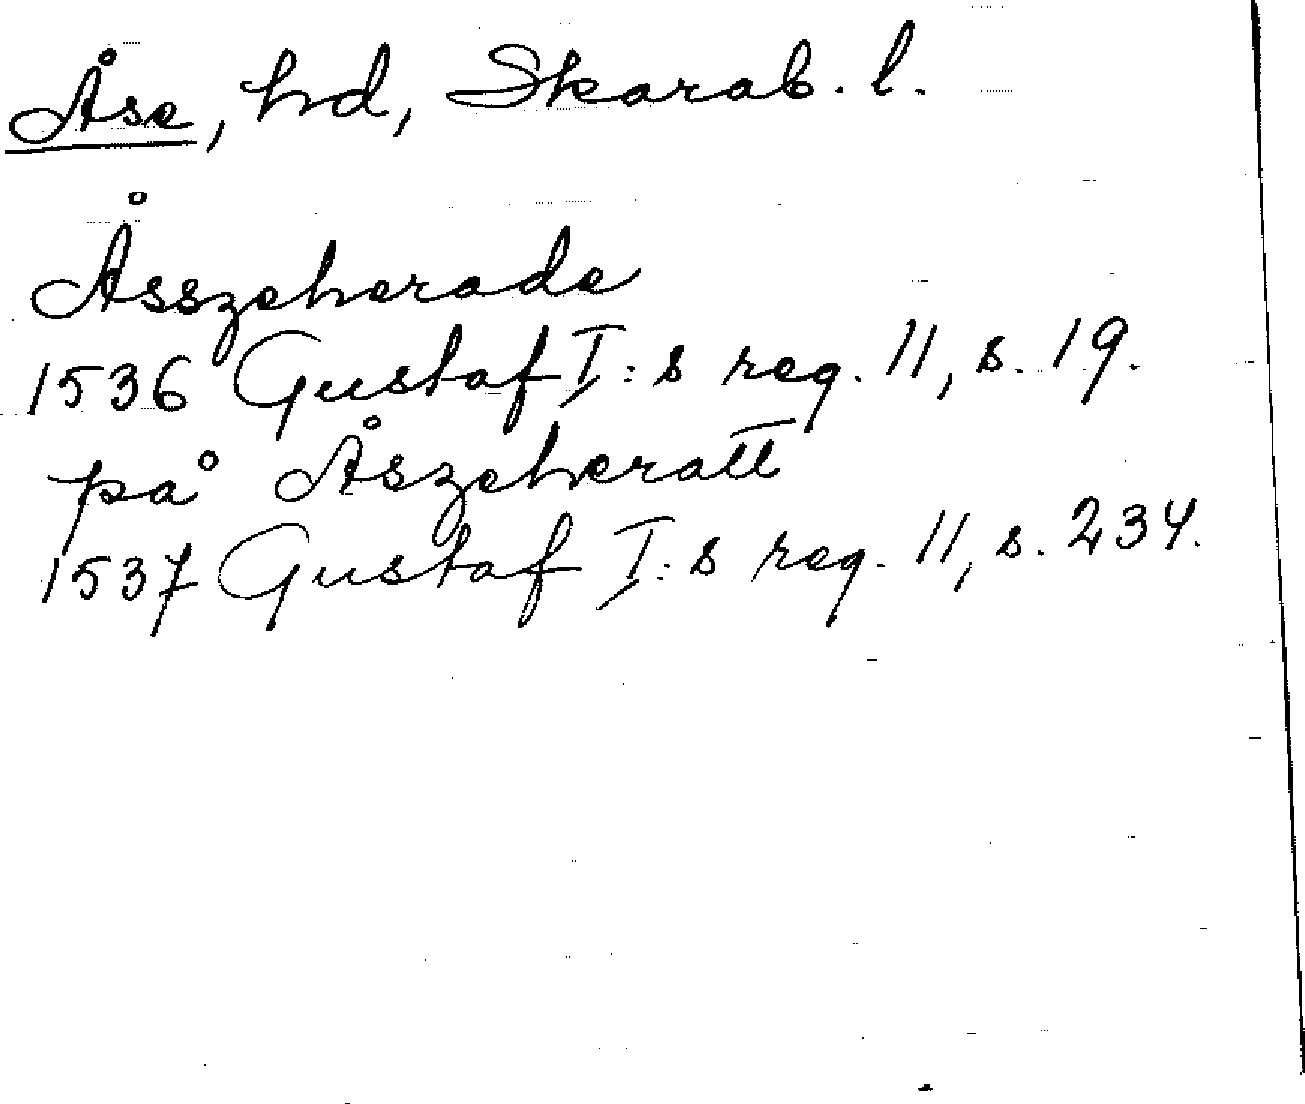 Åse, hd, Skarab. l.
Åsszeherade
1536 Gustaf I:s reg. 11, s. 19.
på Åszeheratt
1537 Gustaf I:s reg. 11, s. 234.